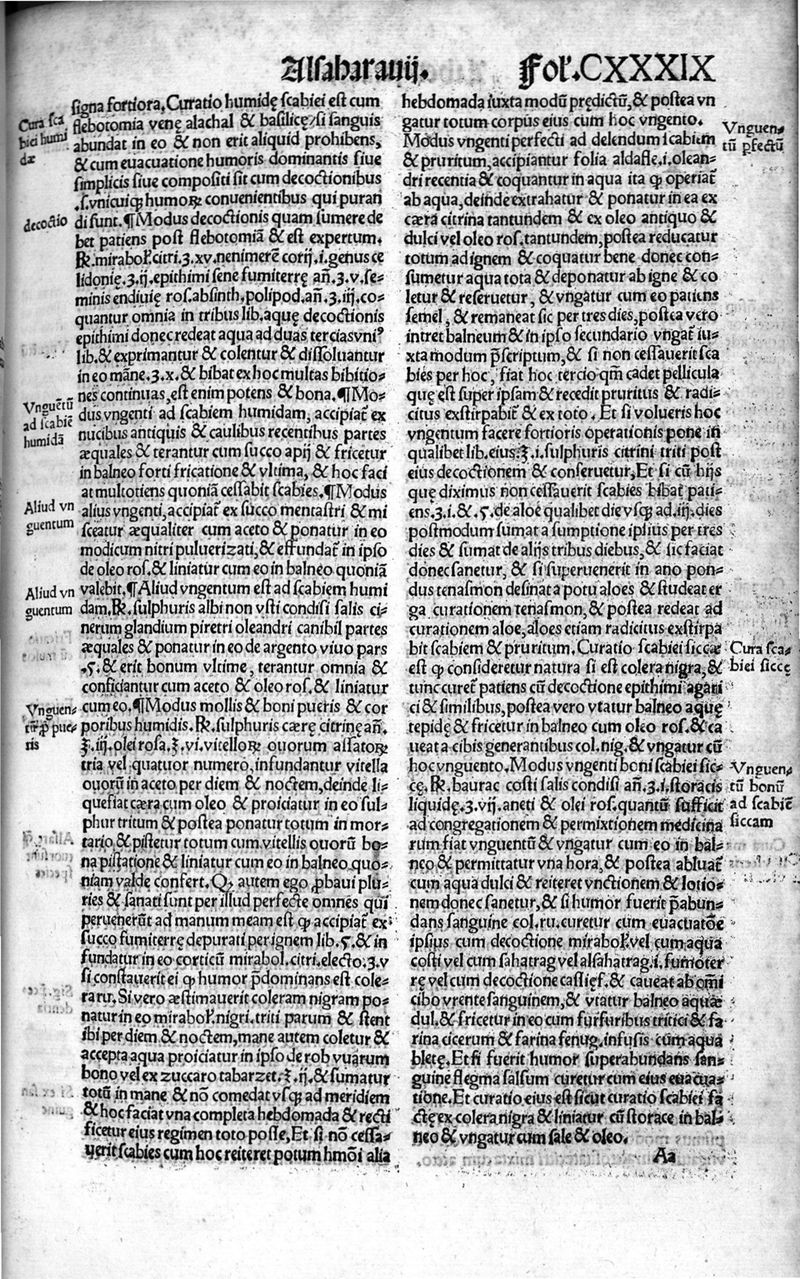 Alsaharauij.
Fol. CXXXIX
signa fortiora. Curatio humidę scabiei est cum
Cura sca
bici humi
dæ
flebotomia venę alachal & basilicę, si sanguis
abundat in eo & non erit aliquid prohibens,
& cum euacuatione humoris dominantis siue
simplicis siue compositi sit cum decoctionibus
.s. vnicuiqꝫ humoꝝ conuenientibus qui purari
decoctio
di sunt. ¶ Modus decoctionis quam sumere de
bet patiens post flebotomiā & est expertum.
℞. mirabol. citri. ʒ. xv. nenimerē corij. i. genus ce
lidonię. ʒ. ij. epithimi sene fumiterrę añ. ʒ. v. se⸗
minis endiuię ros. absinth. polipod. añ. ʒ. iij. co⸗
quantur omnia in tribus lib. aquę decoctionis
epithimi donec redeat aqua ad duas tercias vniꝰ
lib. & exprimantur & colentur & dissoluantur
in eo māne. ʒ. x. & bibat ex hoc multas bibitio⸗
nes continuas, est enim potens & bona. ¶ Mo⸗
Vnguētū
ad scabiē
humidā
dus vngenti ad scabiem humidam, accipiaƭ ex
nucibus antiquis & caulibus recentibus partes
æquales & terantur cum succo apij & fricetur
in balneo forti fricatione & vltima, & hoc faci
at multotiens quoniā cessabit scabies. ¶ Modus
Aliud vn
guentum
alius vngenti, accipiaƭ ex succo mentastri & mi
sceatur æqualiter cum aceto & ponatur in eo
modicum nitri puluerizati, & effundaƭ in ipso
de oleo ros. & liniatur cum eo in balneo quoniā
Aliud vn
guentum
valebit. ¶ Aliud vngentum est ad scabiem humi
dam. ℞. sulphuris albi non vsti condisi salis ci⸗
nerum glandium piretri oleandri canibil partes
æquales & ponatur in eo de argento viuo pars
.ʒ. & erit bonum vltime, terantur omnia &
conficiantur cum aceto & oleo ros. & liniatur
Vnguen⸗
tū ꝓ pue⸗
ris
cum eo. ¶ Modus mollis & boni pueris & cor
poribus humidis. ℞. sulphuris cærę citrinę añ.
℥. iij. olei rosa. ℥. vi. vitelloꝝ quorum assatoꝝ
tria vel quatuor numero, infundantur vitella
ouorū in aceto per diem & noctem, deinde li⸗
quefiat cæra cum oleo & proiciatur in eo sul⸗
phur tritum & postea ponatur totum in mor⸗
tario & pistetur totum cum vitellis ouorū bo⸗
na pistatione & liniatur cum eo in balneo, quo⸗
niam valde confert. Qꝫ autem ego ꝓbaui plu⸗
ries & sanati sunt per illud perfecte omnes qui
peruenerūt ad manum meam est qꝫ accipiaƭ ex⸗
succo fumiterrę depurati per ignem lib. ʒ. & in
fundatur in eo corticū mirabol. citri. electo. ʒ. v
si constauerit ei qꝫ humor p̄dominans est cole⸗
ra ru. Si vero æstimauerit coleram nigram po⸗
natur in eo mirabol. nigri. triti parum & stent
ibi per diem & noctem, mane autem coletur &
accepta aqua proiciatur in ipso de rob vuarum
bono vel ex zuccaro tabarzet. ℥. ij. & sumatur
totū in mane & nō comedat vsqꝫ ad meridiem
& hoc faciat vna completa hebdomada & recti
ficetur eius regimen toto posse, Et si nō cessa⸗
uerit scabies cum hoc reiteret potum hmōi alia
hebdomada iuxta modū prędictū, & postea vn
gatur totum corpus eius cum hoc vngento.
Vnguen⸗
tū pfectū
Modus vngenti perfecti ad delendum scabiem
& pruritum, accipiantur folia aldafle .i. olean⸗
dri recentia & coquantur in aqua ita qꝫ operiaƭ
ab aqua, deinde extrahatur & ponatur in ea ex
cæra citrina tantundem & ex oleo antiquo &
dulci vel oleo ros. tantundem, postea reducatur
totum ad ignem & coquatur bene donec con⸗
sumetur aqua tota & deponatur ab igne & co
letur & reseruetur, & vngatur cum eo patiens
semel, & remaneat sic per tres dies, postea vero
intret balneum & in ipso secundario vngaƭ iu⸗
xta modum p̄scriptum, & si non cessauerit sca
bies per hoc, fiat hoc tercio qm̄ cadet pellicula
quę est super ipsam & recedit pruritus & radi⸗
citus exstirpabiƭ & ex toto. Et si volueris hoc
vngentum facere fortioris operationis pone in
qualibet lib. eius. ℥. i. sulphuris citrini triti post
eius decoctionem & conseruetur, Et si cū hijs
quę diximus non cessauerit scabies bibat pati⸗
ens. ʒ. i. & .ʒ. de aloe qualibet die vsqꝫ ad. iij. dies
postmodum sumat a sumptione ipsius per tres
dies & sumat de alijs tribus diebus, & sic faciat
donec sanetur, & si superuenerit in ano pon⸗
dus tenasmon desinat a potu aloes & studeat er
ga curationem tenasmon, & postea redeat ad
curationem aloe, aloes etiam radicitus exstirpa
Cura sca⸗
biei siccę
bit scabiem & pruritum. Curatio scabiei siccæ
est qꝫ consideretur natura si est colera nigra, &
tunc cureƭ patiens cū decoctione epithimi agari
ci & similibus, postea vero vtatur balneo aquę
tepidę & fricetur in balneo cum oleo ros. & ca
ueat a cibis generantibus col. nig. & vngatur cū
Vnguen⸗
tū bonū
ad scabiē
siccam
hoc vnguento. Modus vngenti boni scabiei sic⸗
cę. ℞. baurac costi salis condisi añ. ʒ. i. storacis
liquidę. ʒ. vij. aneti & olei ros. quantū sufficit
ad congregationem & permixtionem medicina
rum fiat vnguentū & vngatur cum eo in bal⸗
neo & permittatur vna hora, & postea abluaƭ
cum aqua dulci & reiteret vnctionem & lotio⸗
nem donec sanetur, & si humor fuerit p̄abun⸗
dans sanguine col. ru. curetur cum euacuatōe
ipsius cum decoctione mirabol. vel cum aqua
costi vel cum sahatrag vel alsahatrag .i. fumoter
rę vel cum decoctione cassięf. & caueat ab om̄i
cibo vrente sanguinem, & vtatur balneo aquæ
dul. & fricetur in eo cum furfuribus tritici & fa
rina cicerum & farina fenug. infusis cum aqua
bletę. Et si fuerit humor superabundans san⸗
guine flegma salsum curetur cum eius euacua⸗
tione. Et curatio eius est sicut curatio scabiei fa
ctę ex colera nigra & liniatur cū storace in bal⸗
neo & vngatur cum sale & oleo.
Aa